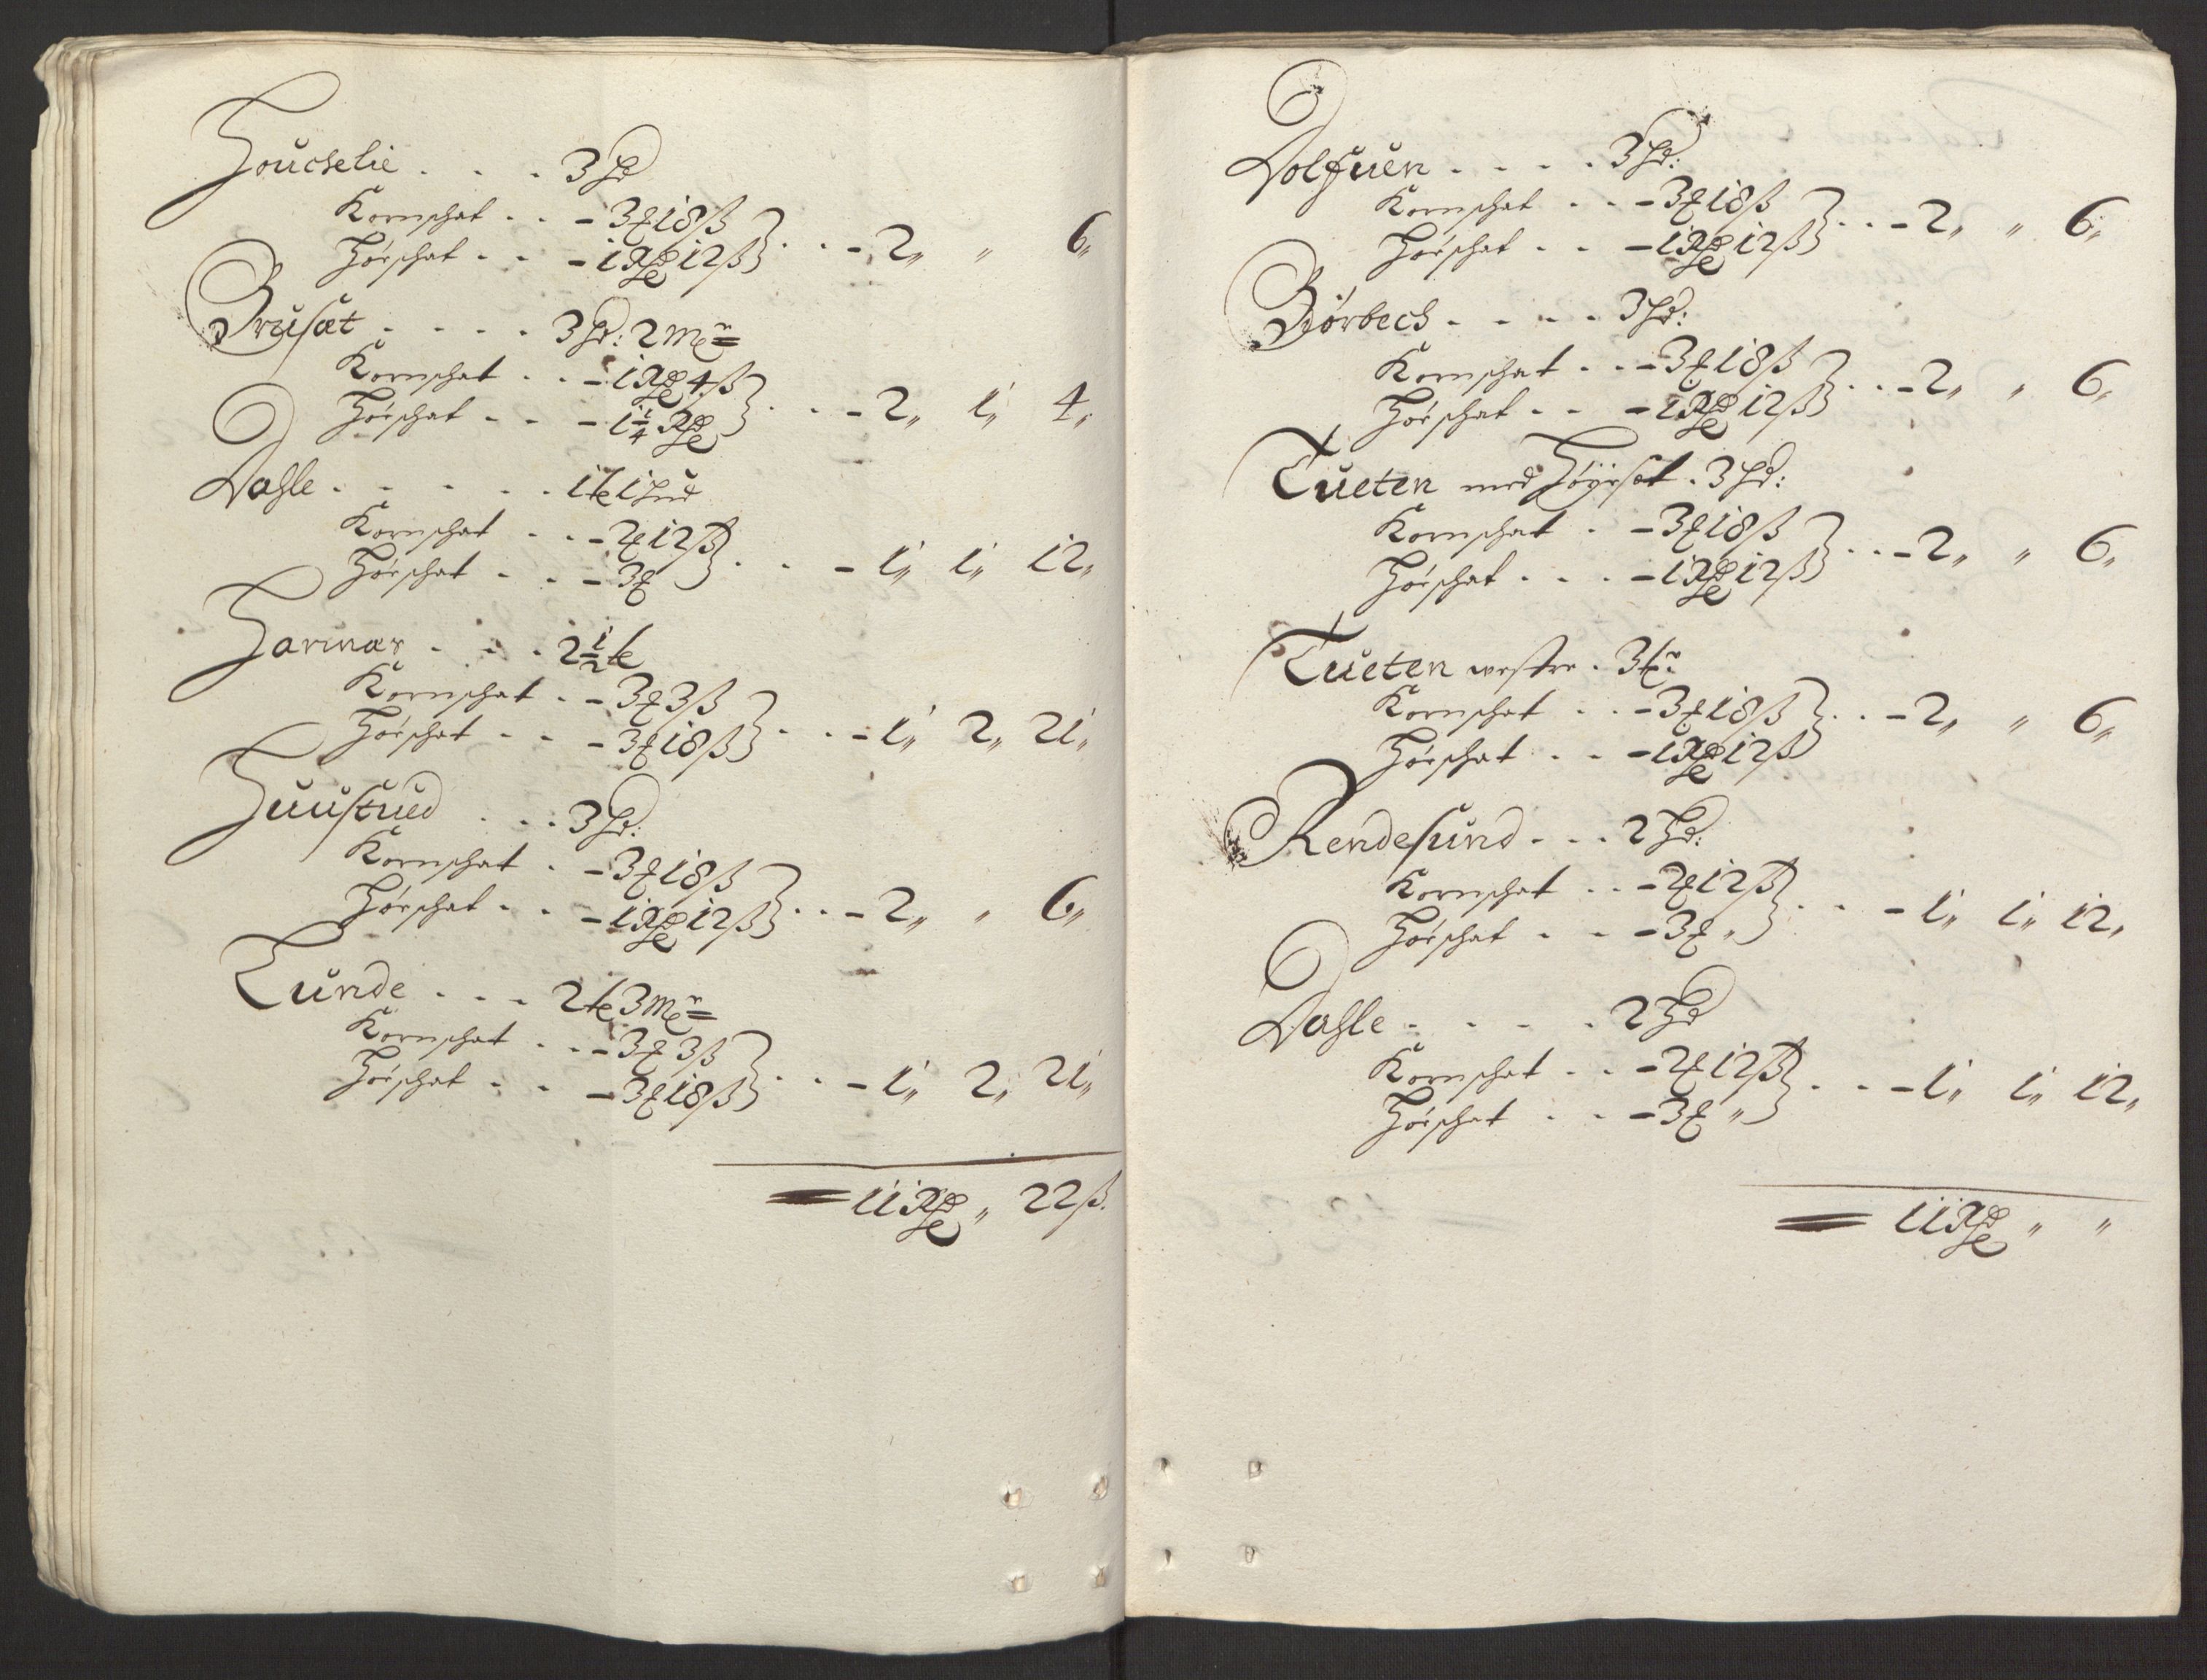 Houchelie . . . 3 hd
Kornschat . . - 3 ꝗ 18 ß
Hörschat . . - 1 Rd 12 ß . . - 2 „ „ 6 „
Brusæt . . . . 3 hd: 2 mr
Kornschat . . - 1 Rd 4 ß
Hörschat . . - 1 1/4 Rd . . - 2 „ 1 „ 4 „
Dahle . . . . . 1 te 1 hud
Kornschat . . - 2 ꝗ 12 ß
Hörschat . . - 3 ꝗ . . . - 1 „ 1 „ 12 „
Harmær . . . 2 1/2 te
Kornschat . . - 3 ꝗ 3 ß
Hörschat . . - 3 ꝗ 18 ß . . . - 1 „ 2 „ 21 „
Huustued . . . 3 hd:
Kornschat . - 3 ꝗ 18 ß
Hörschat . . - 1 Rd 12 ß . . . - 2 „ „ 6 „
Lunde . . . 2 te 3 mr
Kornschat . . - 3 ꝗ 3 ß
Hörschat . . - 3 ꝗ 18 ß . . . - 1 „ 2 „ 21 „
11 Rd „ 22 ß.
Dolfuen . . . . 3 hd:
Kornschat . . - 3 ꝗ 18 ß
Hörschat . . - 1 Rd 12 ß . . . - 2 „ „ 6 „
Börbech . . . . 3 hd:
Kornschat . . - 3 ꝗ 18 ß
Hörschat . . - 1 Rd 12 ß . . . - 2 „ „ 6 „
Tueten med Höyesæt . 3 hd:
Kornschat . - 3 ꝗ 18 ß
Hörschat . . . - 1 Rd 12 ß . . . - 2 „ „ 6 „
Tueten westre . 3 tr
Kornschat . . - 3 ꝗ 18 ß
Hörschat . . - 1 Rd 12 ß . . . - 2 „ „ 6 „
Rendesund . . . 2 hd:
Kornschat . . - 2 ꝗ 12 ß
Hörschat . . - 3 ꝗ „ . . . - 1 „ 1 „ 12 „
Dahle . . . . 2 hd
Kornschat . . - 2 ꝗ 12 ß
Hörschat . . - 3 ꝗ „ . . . - 1 „ 1 „ 12 „
11 Rd „ „